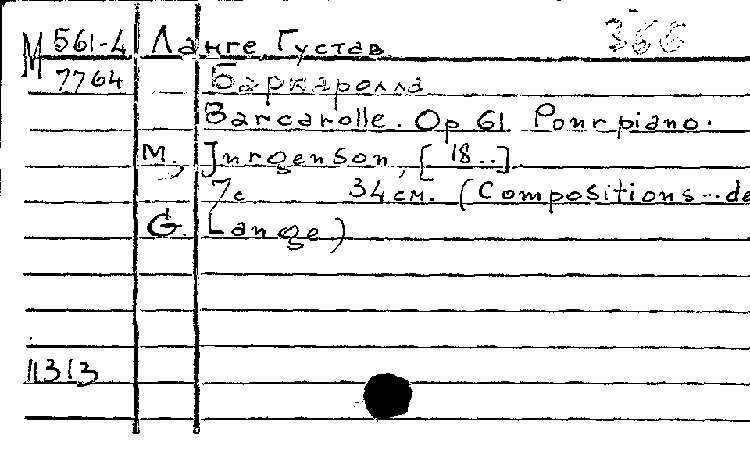 М 561-4 Ланге Густав 366
7764 Баркаролла
Barcarolle. Op 61 Pour piano.
М., Jurgenson, [18..].
7с 34 см. (Compositions de
G. Lange)
11313